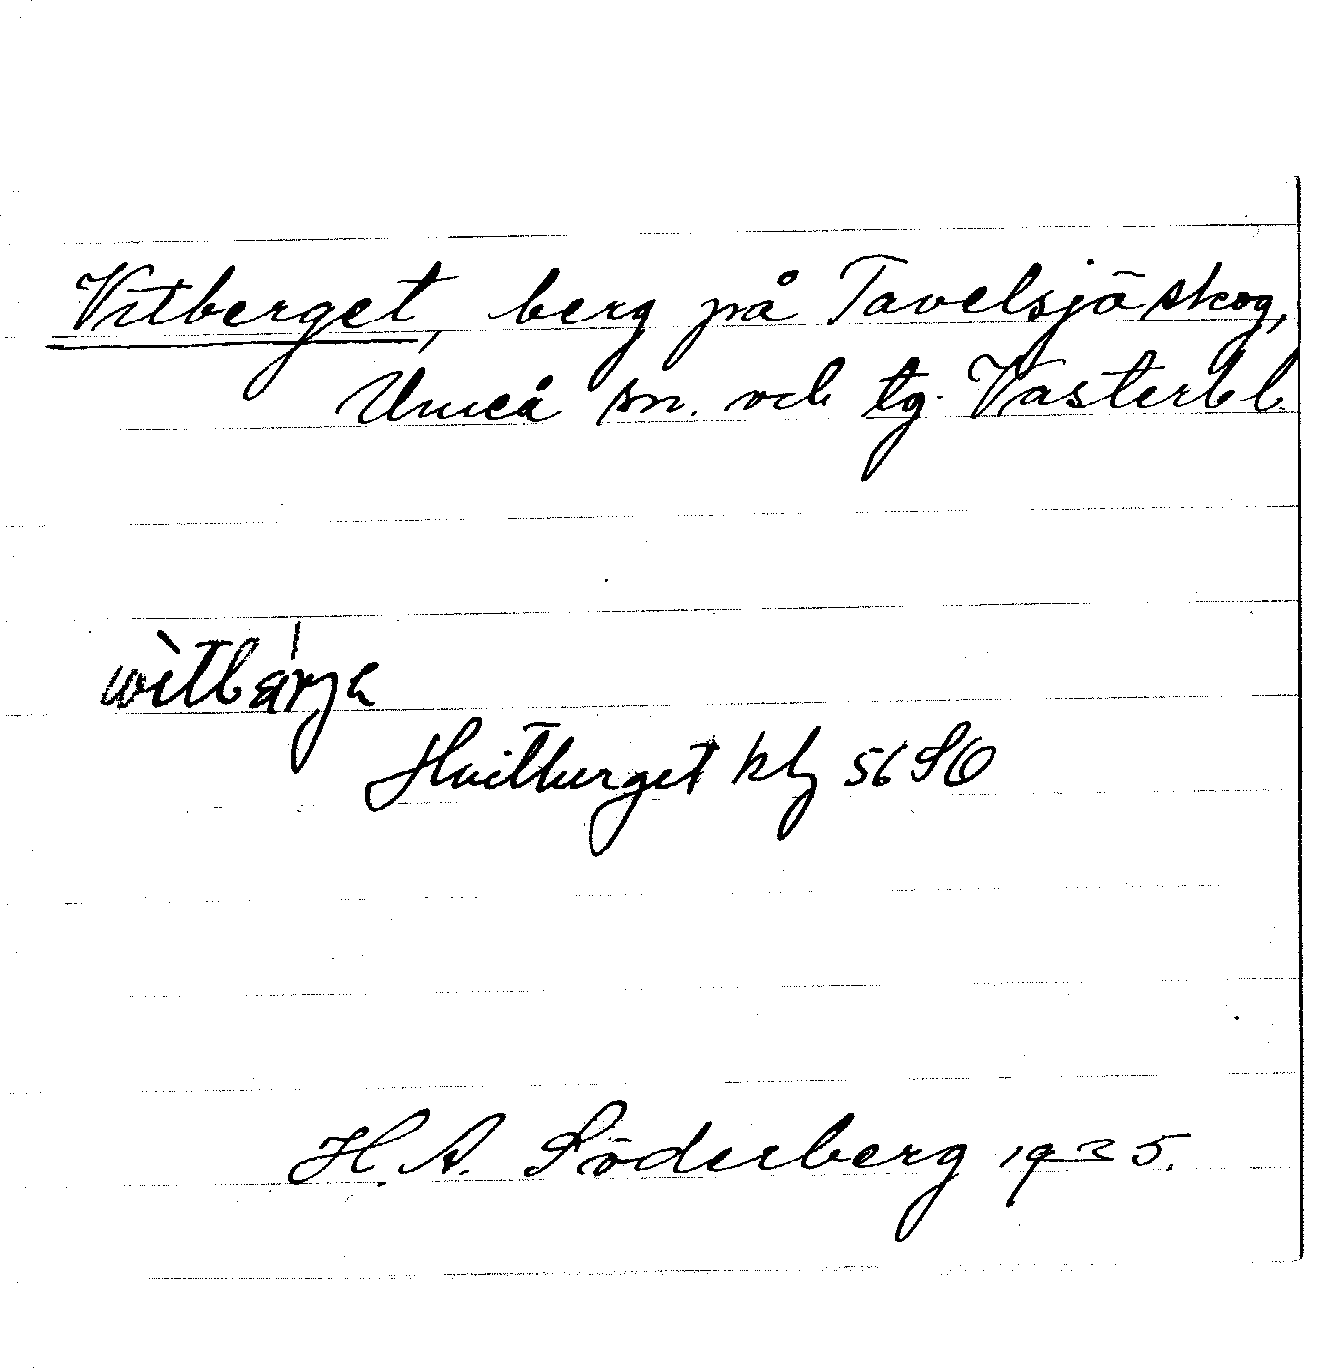 Vitberget, berg på Tavelsjö skog,
Umeå sn. och tg. Västerb l.
wìtbárja
Hvitberget kbl 56 SO
H. A. Söderberg 1935.